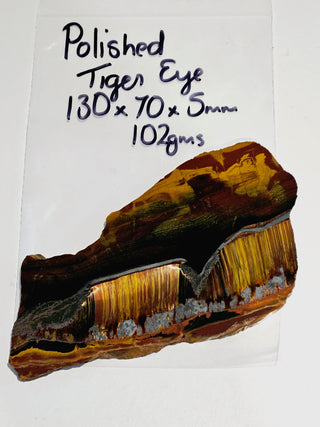 Polished
Tiger Eye
130 x 70 x 5mm
102gms